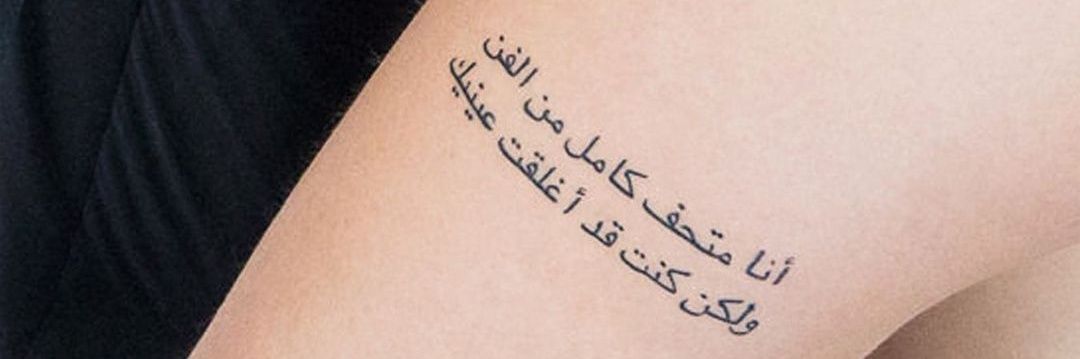 أنا متحف كامل من الفن
ولكن كنت قد أغلقت عينيك